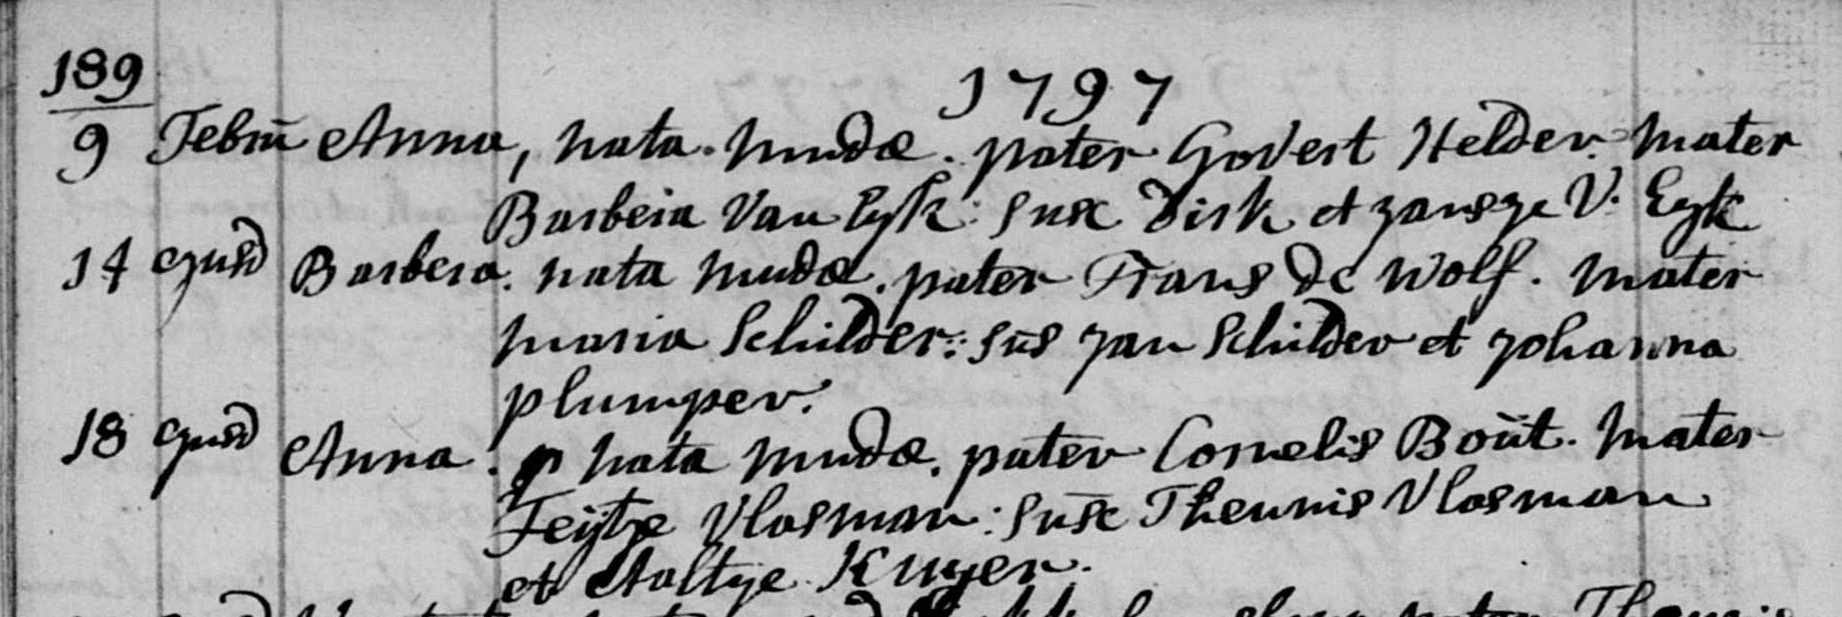 189
1797
9 Febrū Anna, nata. mudæ. pater Govert Helder. mater
Barbera Van Eyk: susc Dirk et Jansje V. Eyk
14 ejusd Barbera. nata mudæ. pater Frans de Wolf. mater
maria Schilder: sus Jan Schilder et Johanna
plumper.
18 ejusd Anna. nata mudæ. pater Cornelis Boüt. mater
Feijtje Vlosman: susc Theunis Vlosman
et Aaltje Kuyer.